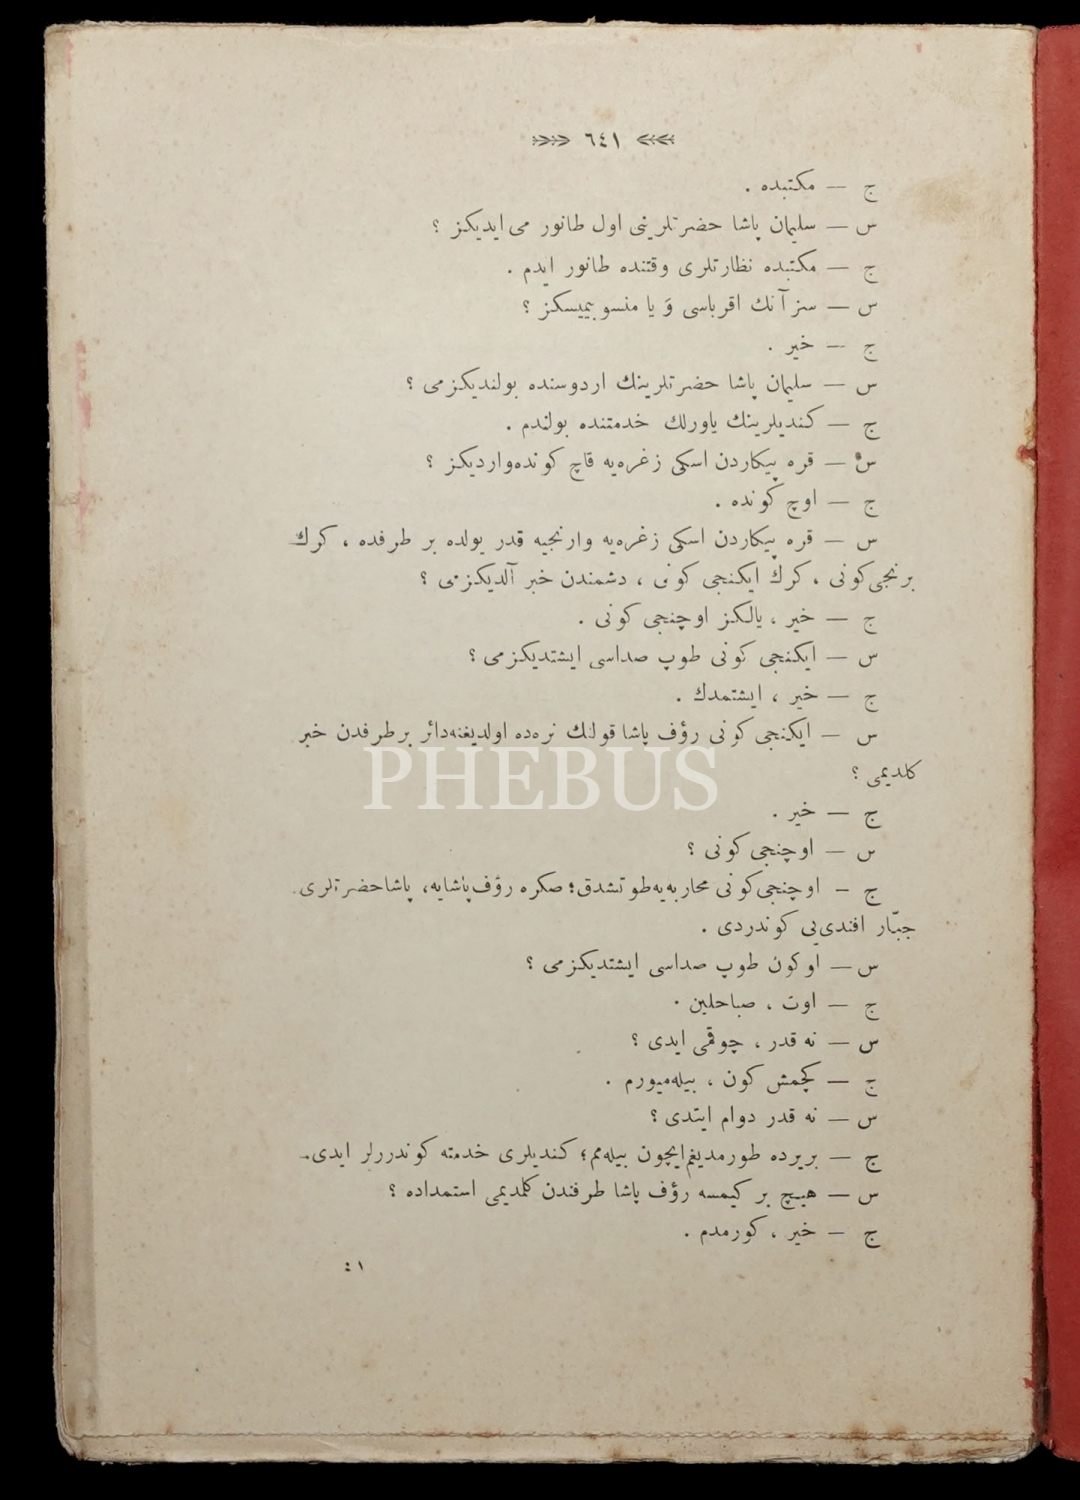 ٦٤١
ج — مكتبده .
س — سليمان پاشا حضرتلرينی اول طانور می ايديكز ؟
ج — مكتبده نظارتلری وقتنده طانور ايدم .
س — سز آنك اقرباسی وَ يا منسوبيميسكز ؟
ج — خير .
س — سليمان پاشا حضرتلرينك اردوسنده بولنديكزمی ؟
ج — كنديلرينك ياورلك خدمتنده بولندم .
س — قره پيكاردن اسكی زغره‌يه قاچ كونده‌وارديكز ؟
ج — اوچ كونده .
س — قره پيكاردن اسكی زغره‌يه وارنجيه قدر يولده بر طرفده ، كرك
برنجی‌كونی ، كرك ايكنجی كونی ، دشمندن خبر آلديكزمی ؟
ج — خير ، يالكز اوچنجی كونی .
س — ايكنجی كونی طوپ صداسی ايشتديكزمی ؟
ج — خير ، ايشتمدك .
س — ايكنجی كونی رؤف پاشا قولنك نره‌ده اولديغنه‌دائر برطرفدن خبر
كلديمی ؟
PHEBUS
ج — خير .
س — اوچنجی كونی ؟
ج — اوچنجی‌كونی محاربه‌يه‌طوتشدق؛ صكره رؤف‌پاشايه، پاشاحضرتلری
جبّار افندی‌يی كوندردی .
س — اوكون طوپ صداسی ايشتديكزمی ؟
ج — اوت ، صباحلين .
س — نه قدر ، چوقمی ايدی ؟
ج — كچمش كون ، بيله‌ميورم .
س — نه قدر دوام ايتدی ؟
ج — بريرده طورمديغم‌ايچون بيله‌مم؛ كنديلری خدمته كوندررلر ايدی.
س — هيچ بر كيمسه رؤف پاشا طرفندن كلمديمی استمداده ؟
ج — خير ، كورمدم .
٤١